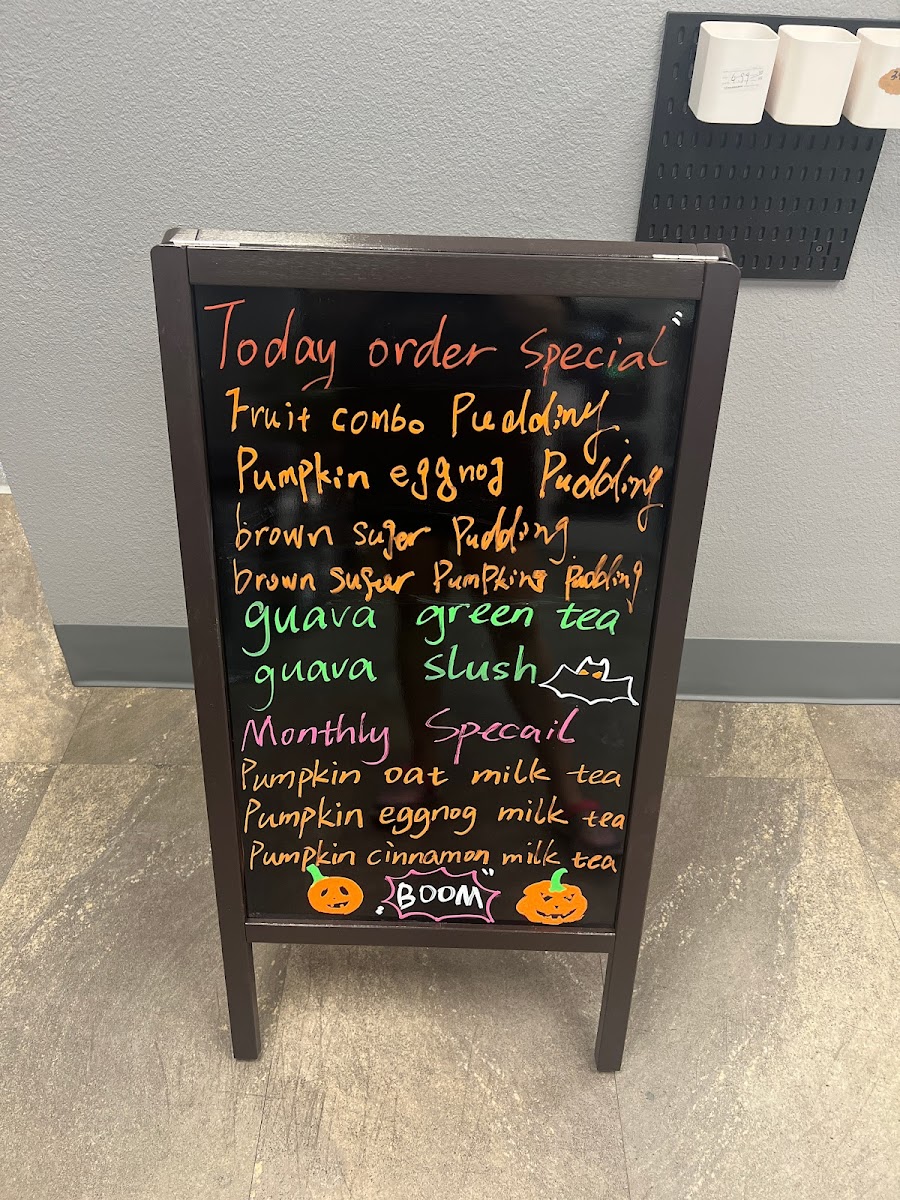 Today order Special
Fruit combo Pudding
Pumpkin eggnog Pudding
brown suger Pudding
brown suger Pumpking Pudding
guava green tea
guava slush
Monthly Specail
Pumpkin oat milk tea
Pumpkin eggnog milk tea
Pumpkin cinnamon milk tea
BOOM